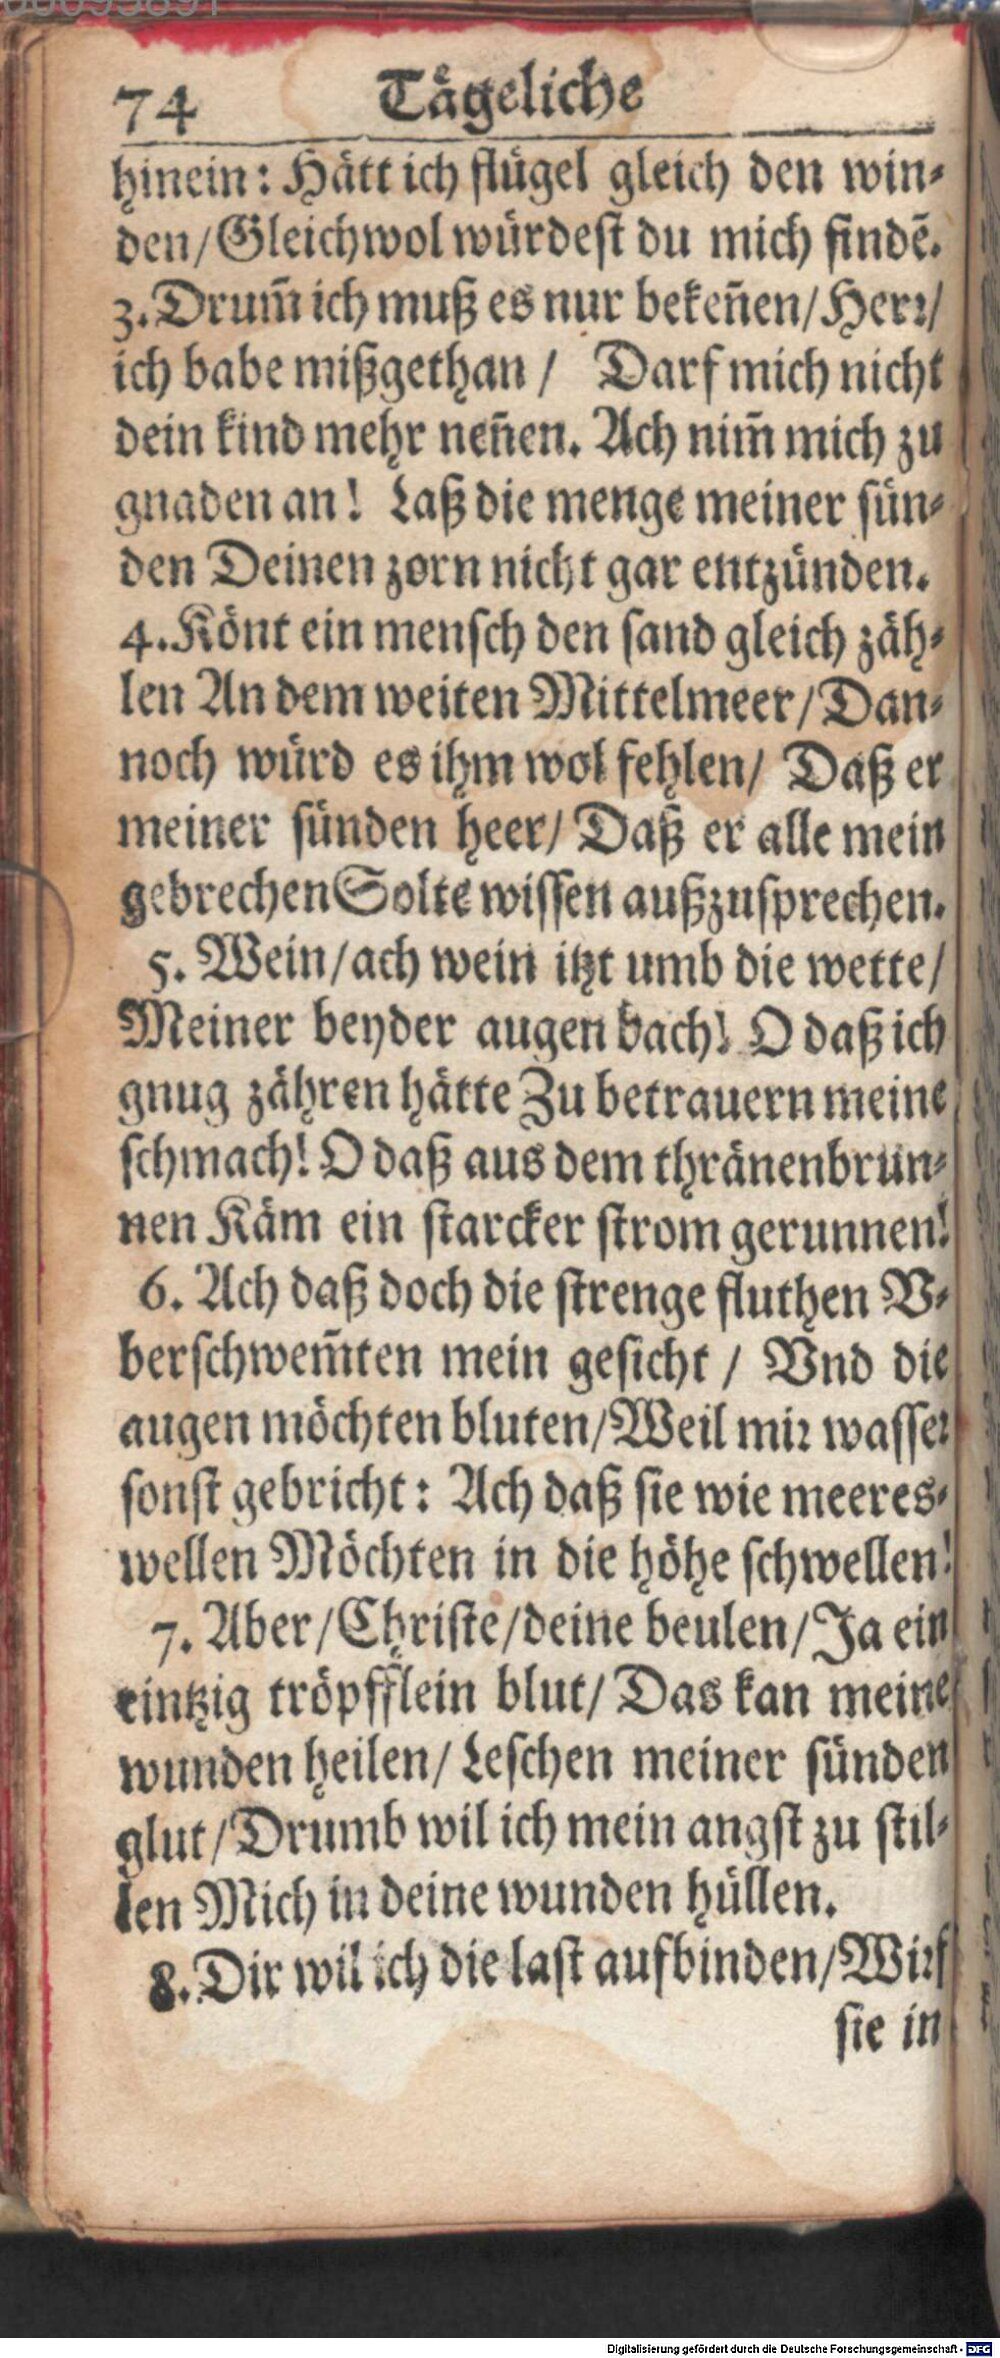 74 Tågeliche
hinein: Hätt ich flügel gleich den win⸗
den/Gleichwol würdest du mich findẽ.
3. Drum̃ ich muß es nur bekeñen/Herr/
ich babe mißgethan / Darf mich nicht
dein kind mehr neñen. Ach nim̃ mich zu
gnaden an! Laß die menge meiner sün⸗
den Deinen zorn nicht gar entzünden.
4. Könt ein mensch den sand gleich zäh⸗
len An dem weiten Mittelmeer/Dan⸗
noch würd es ihm wol fehlen/ Daß er
meiner sünden heer/ Daß er alle mein
gebrechen Solte wissen außzusprechen.
5. Wein/ach wein itzt umb die wette/
Meiner beyder augen bach! O daß ich
gnug zähren hätte Zu betrauern meine
schmach! O daß aus dem thränenbrun⸗
nen Käm ein starcker strom gerunnen!
6. Ach daß doch die strenge fluthen V⸗
berschwem̃ten mein gesicht / Vnd die
augen möchten bluten/Weil mir wasser
sonst gebricht: Ach daß sie wie meeres⸗
wellen Möchten in die höhe schwellen!
7. Aber/Christe/deine beulen/Ja ein
eintzig tröpfflein blut/ Das kan meine
wunden heilen/ Leschen meiner sünden
glut/Drumb wil ich mein angst zu stil⸗
len Mich in deine wunden hüllen.
8. Dir wil ich die last aufbinden/Wirf
sie in
Digitalisierung gefördert durch die Deutsche Forschungsgemeinschaft - DFG